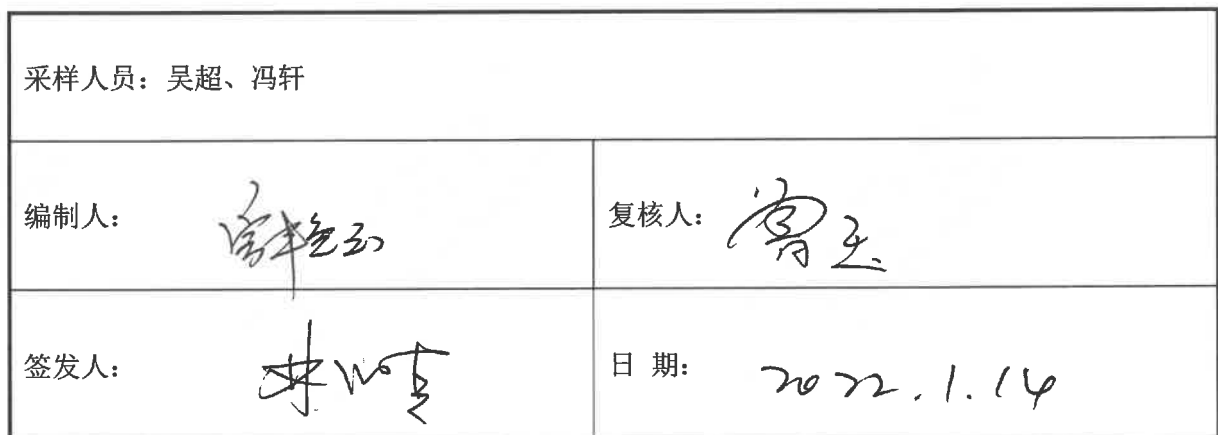 采样人员：吴超、冯轩
编制人：
复核人：
签发人：
日 期：2022.1.14